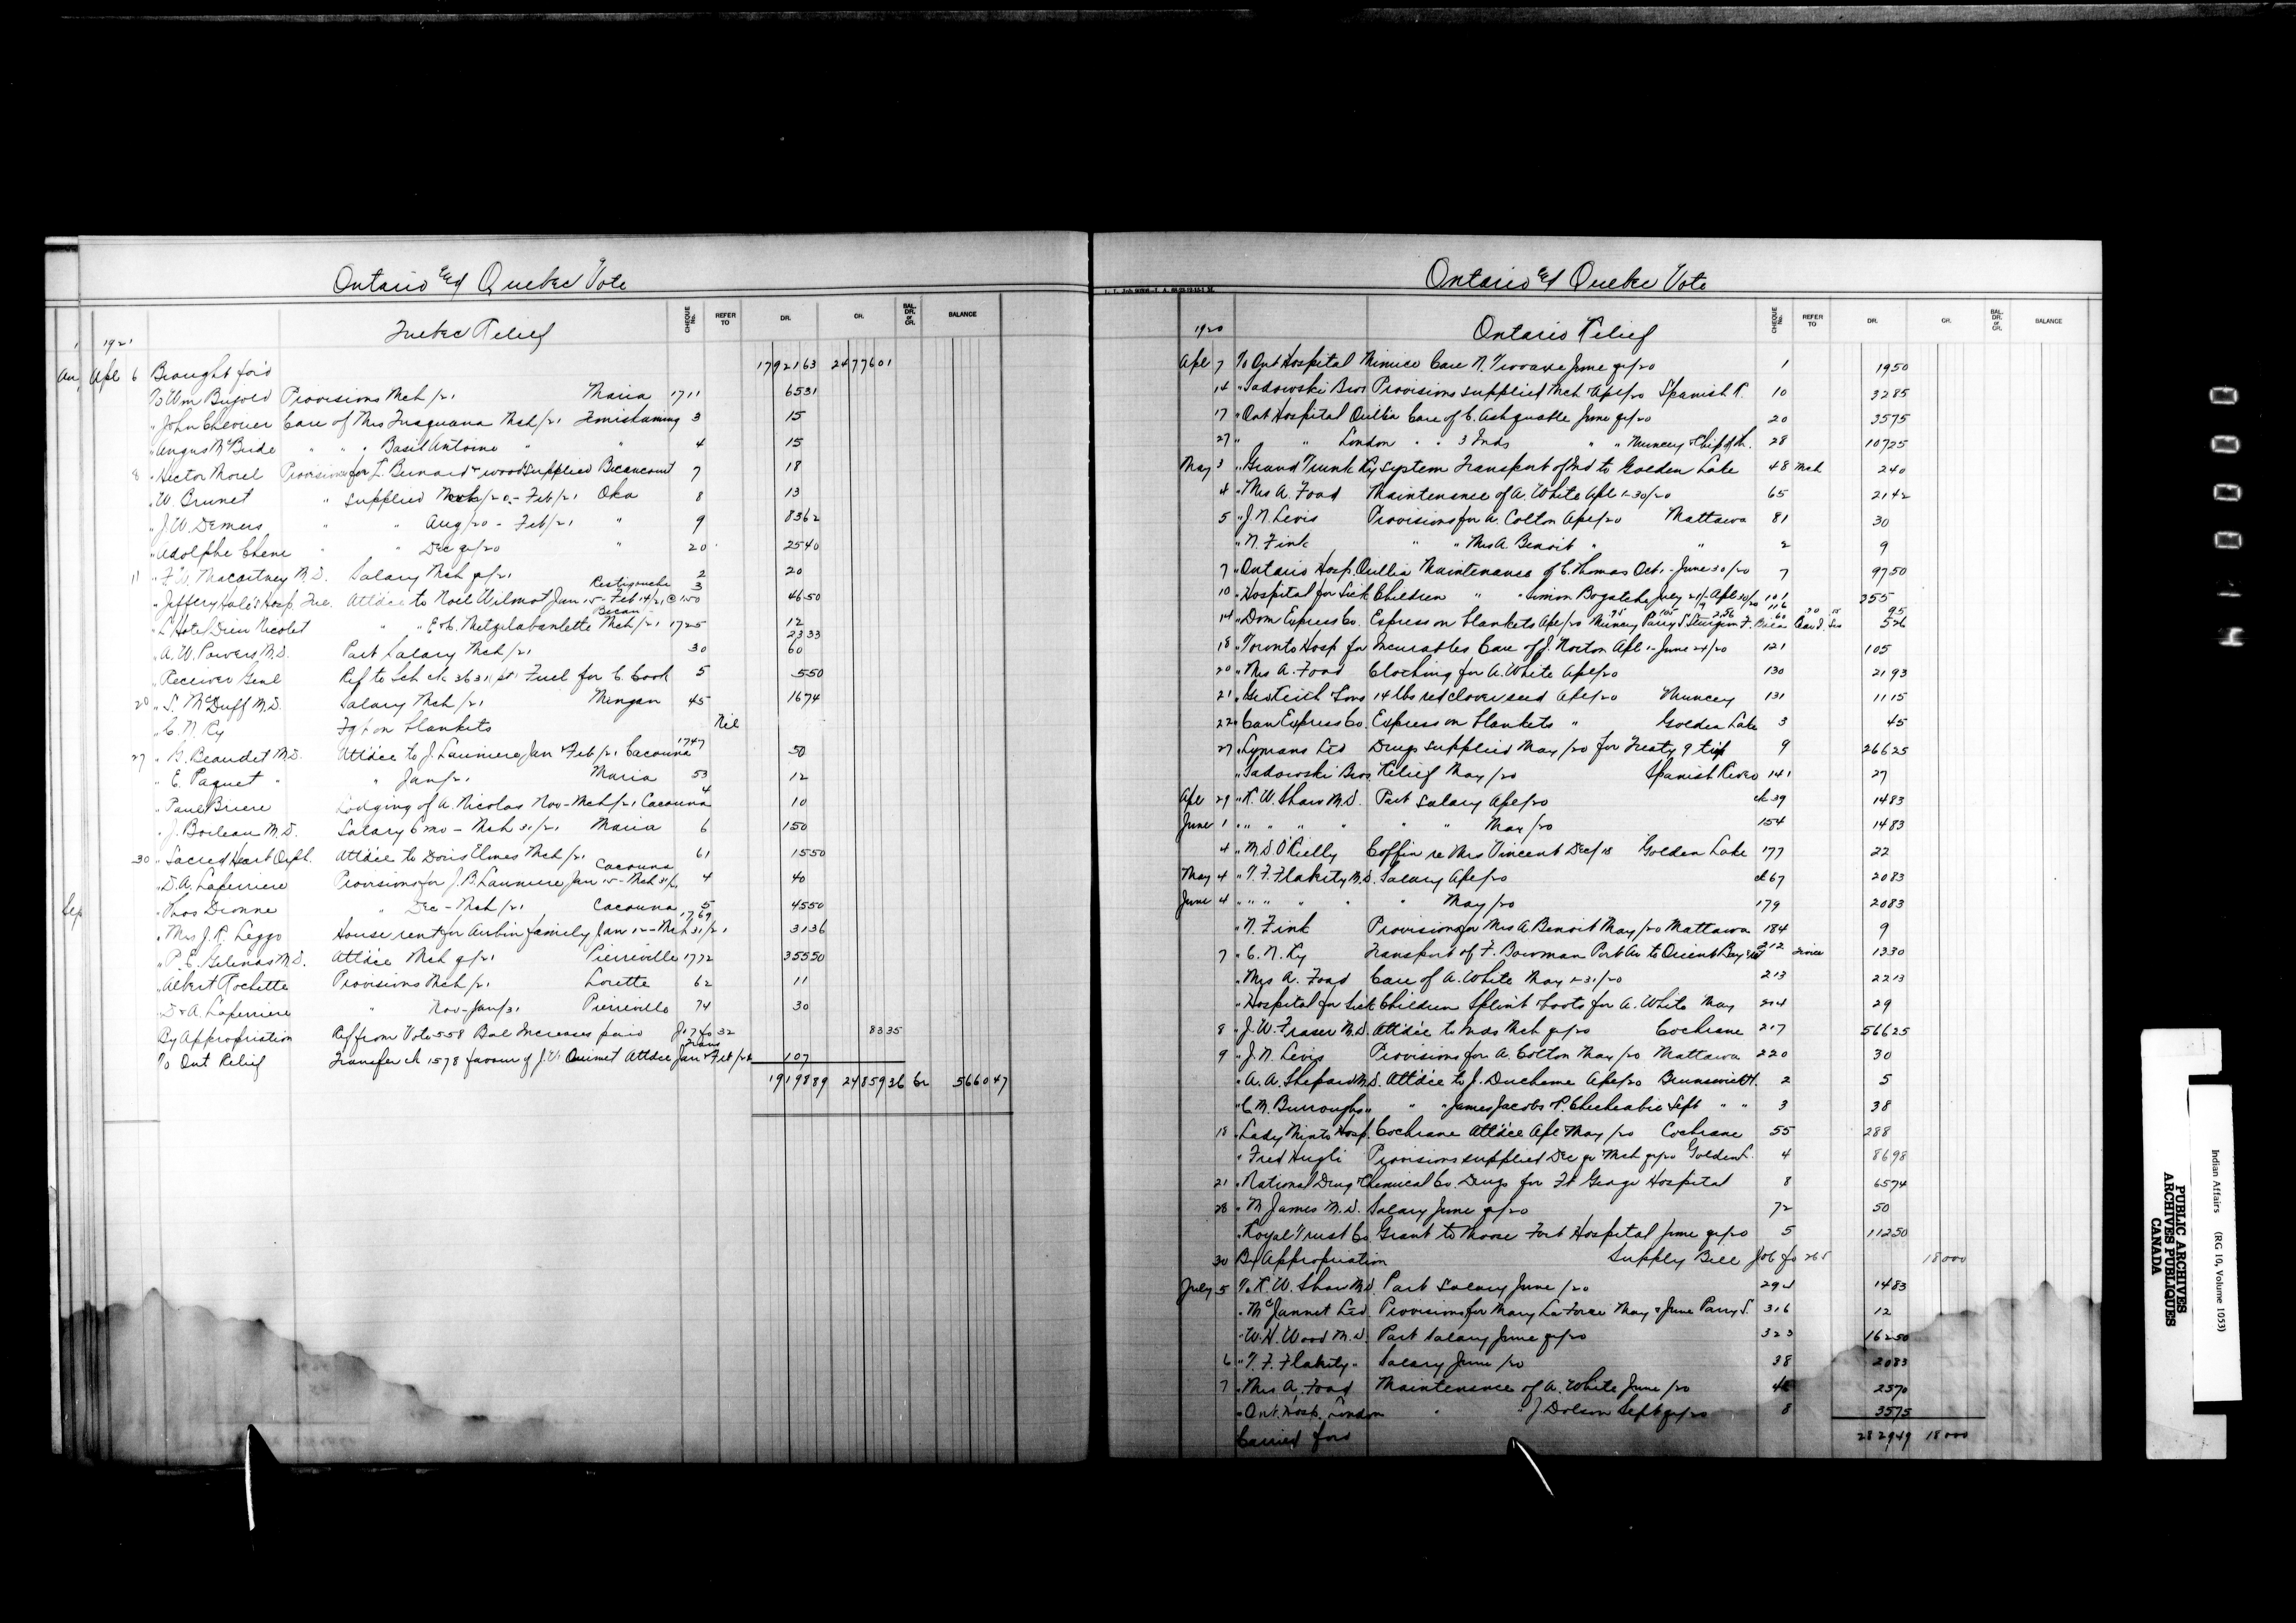 Ontario and Quebec Vote
Quebec Relief
CHEQUE No. REFER TO DR. CR. BAL. DR. or CR. BALANCE
1921
Apl 6 Brought for'd 17921 63 24776 01
To Wm Bujold Provisions Mch /21 Maria 1711 65 31
" John Chevrier Care of Mrs Mch /21 Temiskaming 3 15
" Angus McBride " " Basil Antoine " " 4 15
8 " Hector Morel Provisions for L. Bernard & wood supplied Becancourt 7 18
" W. Brunet " supplied Mch /20 - Feb /21 Oka 8 13
" J. W. Demers " " Aug /20 - Feb /21 " 9 83 62
" Adolphe Chene " " Dec qr /20 " 20 25 40
11 " F. W. Macartney M.D. Salary Mch qr /21 2 20
" Jeffery Hale's Hosp. Attd'ce to Noel Wilmot Jan 15 - Feb 14/21 @ 1.50 Restigouche 3 46 50
" L'Hotel Dieu Nicolet " " Metzelabanlette Mch /21 Becan 1725 12
" A. W. Powers M.D. Part Salary Mch /21 30 23 33
60
" Receiver Genl Ref to Sch ck 3631 pt Fuel for C. Cook 5 5 50
20 " S. McDuff M.D. Salary Mch /21 Mingan 45 16 74
" C. N. Ry Fgt on blankets Nil
27 " G. Beaudet M.D. Attd'ce to J. Launiere Jan & Feb /21 Cacouna 1747 50
" E. Paquet " " Jan /21 Maria 53 12
" Paul Briere Lodging of A. Nicolas Nov - Mch /21 Cacouna 4 10
" J. Boileau M.D. Salary 6 mo - Mch 31/21 Maria 6 150
30 " Sacred Heart Orph. Attd'ce to Doris Elmes Mch /21 61 15 50
" D. A. Laperriere Provisions for J. B. Launiere Jan 15 - Mch 31/21 Cacouna 4 40
" Thos Dionne " Dec - Mch /21 Cacouna 5 45 50
" Mrs J. R. Leggo House rent for Aubin family Jan 12 - Mch 31/21 1769 31 36
" P. E. Gelinas M.D. Attd'ce Mch qr /21 Pierreville 1772 355 50
" Albert Rochette Provisions Mch /21 Lorette 62 11
" D. A. Laperriere " Nov - Jan /21 Pierreville 74 30
By Appropriation Ref from Vote 558 Bal Increases paid Jo 7 fo 32 83 35
To Ont Relief Transfer ck 1578 favour of J. V. Ouimet Attd'ce Jan & Feb /21 Trans 107
19198 89 24859 36 Cr 5660 47
Ontario and Quebec Vote
Ontario Relief
CHEQUE No. REFER TO DR. CR. BAL. DR. or CR. BALANCE
1920
Apl 7 To Ont Hospital Mimico Care N. June qr /20 1 19 50
14 " Sadowski Bros Provisions supplied Mch & Apl /20 Spanish R. 10 32 85
17 " Ont Hospital Orillia Care of C. Ashquabe June qr /20 20 35 75
27 " " London " " 3 Inds " " Muncey & Chip of Th. 28 107 25
May 3 " Grand Trunk Ry System Transport of Ind to Golden Lake 48 Mch 2 40
4 " Mrs A. Foad Maintenance of A. White Apl 1-30/20 65 21 42
5 " J. N. Levis Provisions for A. Colton Apl /20 Mattawa 81 30
" N. Fink " " Mrs A. Benoit " " 2 9
7 " Ontario Hosp. Orillia Maintenance of C. Thomas Oct 1 - June 30/20 7 97 50
10 " Hospital for Sick Children " " Simon July 21/19 Apl 30/20 101 255
14 " Dom Express Co. Express on blankets Apl /20 Muncey Parry S Sturgeon F. 116 95
5 26
18 " Toronto Hosp for Incurables Care of J. Norton Apl 1 - June 24/20 121 105
20 " Mrs A. Foad Clothing for A. White Apl /20 130 21 93
21 " Geo Keith & Sons 14 lbs red clover seed Apl /20 Muncey 131 11 15
22 " Can Express Co. Express on blankets " Golden Lake 3 45
27 " Lymans Ltd Drugs supplied May /20 for Treaty 9 trip 9 266 25
" Sadowski Bros Relief May /20 Spanish River 141 27
Apl 29 " K. W. Shaw M.D. Part Salary Apl /20 ck 39 14 83
June 1 " " " " " " May /20 154 14 83
4 " M. D. O'Rielly Coffin re Mrs Vincent Dec /18 Golden Lake 177 22
May 4 " T. F. Flahity M.D. Salary Apl /20 ck 67 20 83
June 4 " " " " " May /20 179 20 83
" N. Fink Provisions for Mrs A. Benoit May /20 Mattawa 184 9
7 " C. N. Ry Transport of F. Bowman Port Ar to Orient Bay & ret 212 13 30
" Mrs A. Foad Care of A. White May 1-31/20 213 22 13
" Hospital for Sick Children Splint & boots for A. White May 214 29
8 " J. W. Fraser M.D. Attd'ce to Inds Mch qr /20 Cochrane 217 566 25
9 " J. N. Levis Provisions for A. Colton May /20 Mattawa 220 30
" A. A. Shepard M.D. Attd'ce to J. Ducheme Apl /20 Brunswick H. 2 5
" C. M. Burroughs " " " James Jacobs & P. Sept " " 3 38
18 " Lady Minto Hosp. Cochrane Attd'ce Apl & May /20 Cochrane 55 288
" Fred Hugli Provisions supplied Dec qr & Mch qr /20 Golden L. 4 86 98
21 " National Drug & Chemical Co. Drugs for Ft George Hospital 8 65 74
28 " M James M.D. Salary June qr /20 72 50
" Royal Trust Co Grant to Moose Fort Hospital June qr /20 5 112 50
30 By Appropriation Supply Bill Jo 6 fo 265 18000
July 5 To K. W. Shaw M.D. Part Salary June /20 292 14 83
" McJannet Ltd. Provisions for Mary La Force May & June Parry S. 316 12
" W. H. Wood M.D. Part Salary June qr /20 323 162 50
6 " T. F. Flahity " Salary June /20 38 20 83
7 " Mrs A. Foad Maintenance of A. White June /20 25 70
" Ont. Hosp. London " " J. Dolson Sept qr /20 8 35 75
Carried ford 2829 49 18000
Indian Affairs (RG 10, Volume 1053)
PUBLIC ARCHIVES
ARCHIVES PUBLIQUES
CANADA